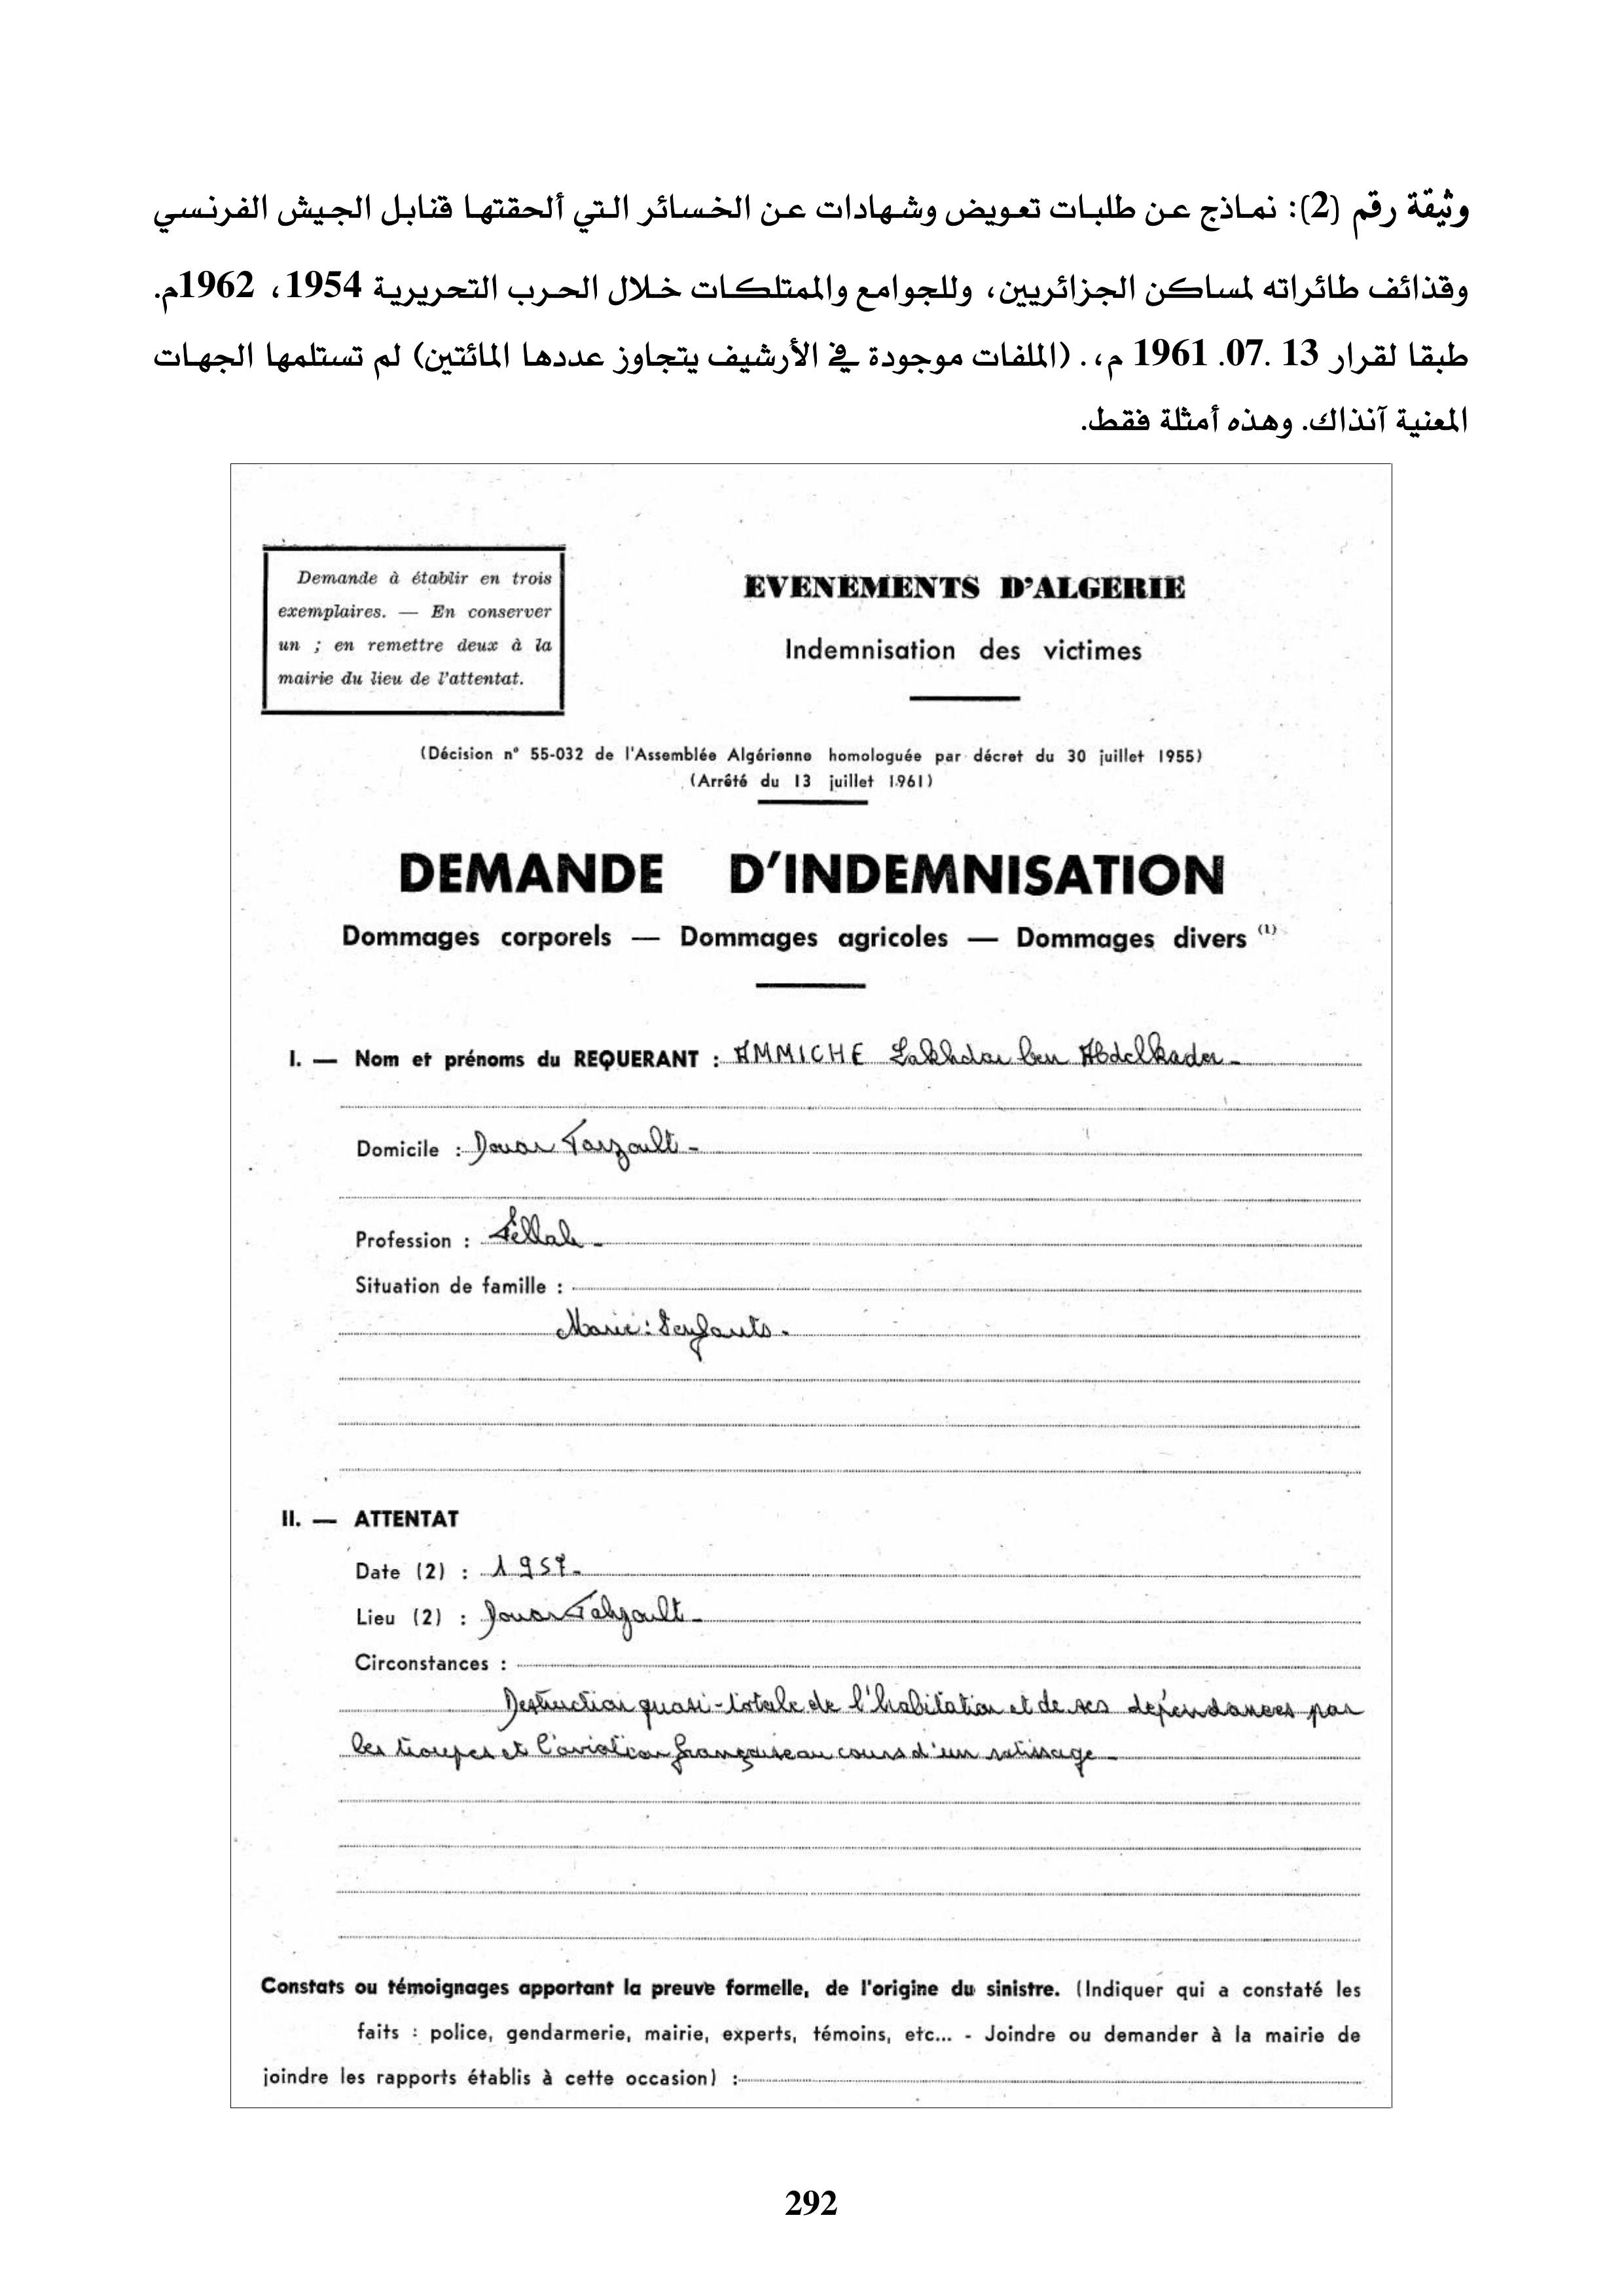 وثيقة رقم (2): نماذج عن طلبات تعويض وشهادات عن الخسائر التي ألحقتها قنابل الجيش الفرنسي
وقذائف طائراته لمساكن الجزائريين، وللجوامع والممتلكات خلال الحرب التحريرية 1954، 1962م.
طبقا لقرار 13 .07. 1961 م،. (الملفات موجودة في الأرشيف يتجاوز عددها المائتين) لم تستلمها الجهات
المعنية آنذاك. وهذه أمثلة فقط.
Demande à établir en trois
exemplaires. — En conserver
un ; en remettre deux à la
mairie du lieu de l'attentat.
EVENEMENTS D'ALGERIE
Indemnisation des victimes
(Décision n° 55-032 de l'Assemblée Algérienne homologuée par décret du 30 juillet 1955)
(Arrêté du 13 juillet 1961)
DEMANDE D'INDEMNISATION
Dommages corporels — Dommages agricoles — Dommages divers (1)
I. — Nom et prénoms du REQUERANT : AMMICHE Lakhdar ben Abdelkader -
Domicile : Douar
Profession : Fellah -
Situation de famille :
Marié: enfants.
II. — ATTENTAT
Date (2) : 1957.
Lieu (2) : Douar
Circonstances :
Destruction quasi-totale de l'habitation et de ses dépendances par
les troupes et l'aviation française au cours d'un ratissage -
Constats ou témoignages apportant la preuve formelle, de l'origine du sinistre. (Indiquer qui a constaté les
faits : police, gendarmerie, mairie, experts, témoins, etc... - Joindre ou demander à la mairie de
joindre les rapports établis à cette occasion) :
292